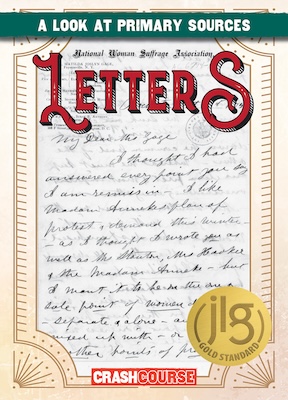 A LOOK AT PRIMARY SOURCES
National Woman Suffrage Association
MATILDA JOSLYN GAGE
LETTERS
My Dear Mrs Gage
I thought I had
answered every point you
I am remiss in. I like
Madam Annekes plan of
protest & demand this winter
- as I thought I wrote you as
well as Mrs Stanton, Mrs Hooker
& the Madam Anneke - but
I want it to be on the one
sole point of women
separate & alone - and
mixed up with - or
other points of
jlg
GOLD STANDARD
CRASHCOURSE